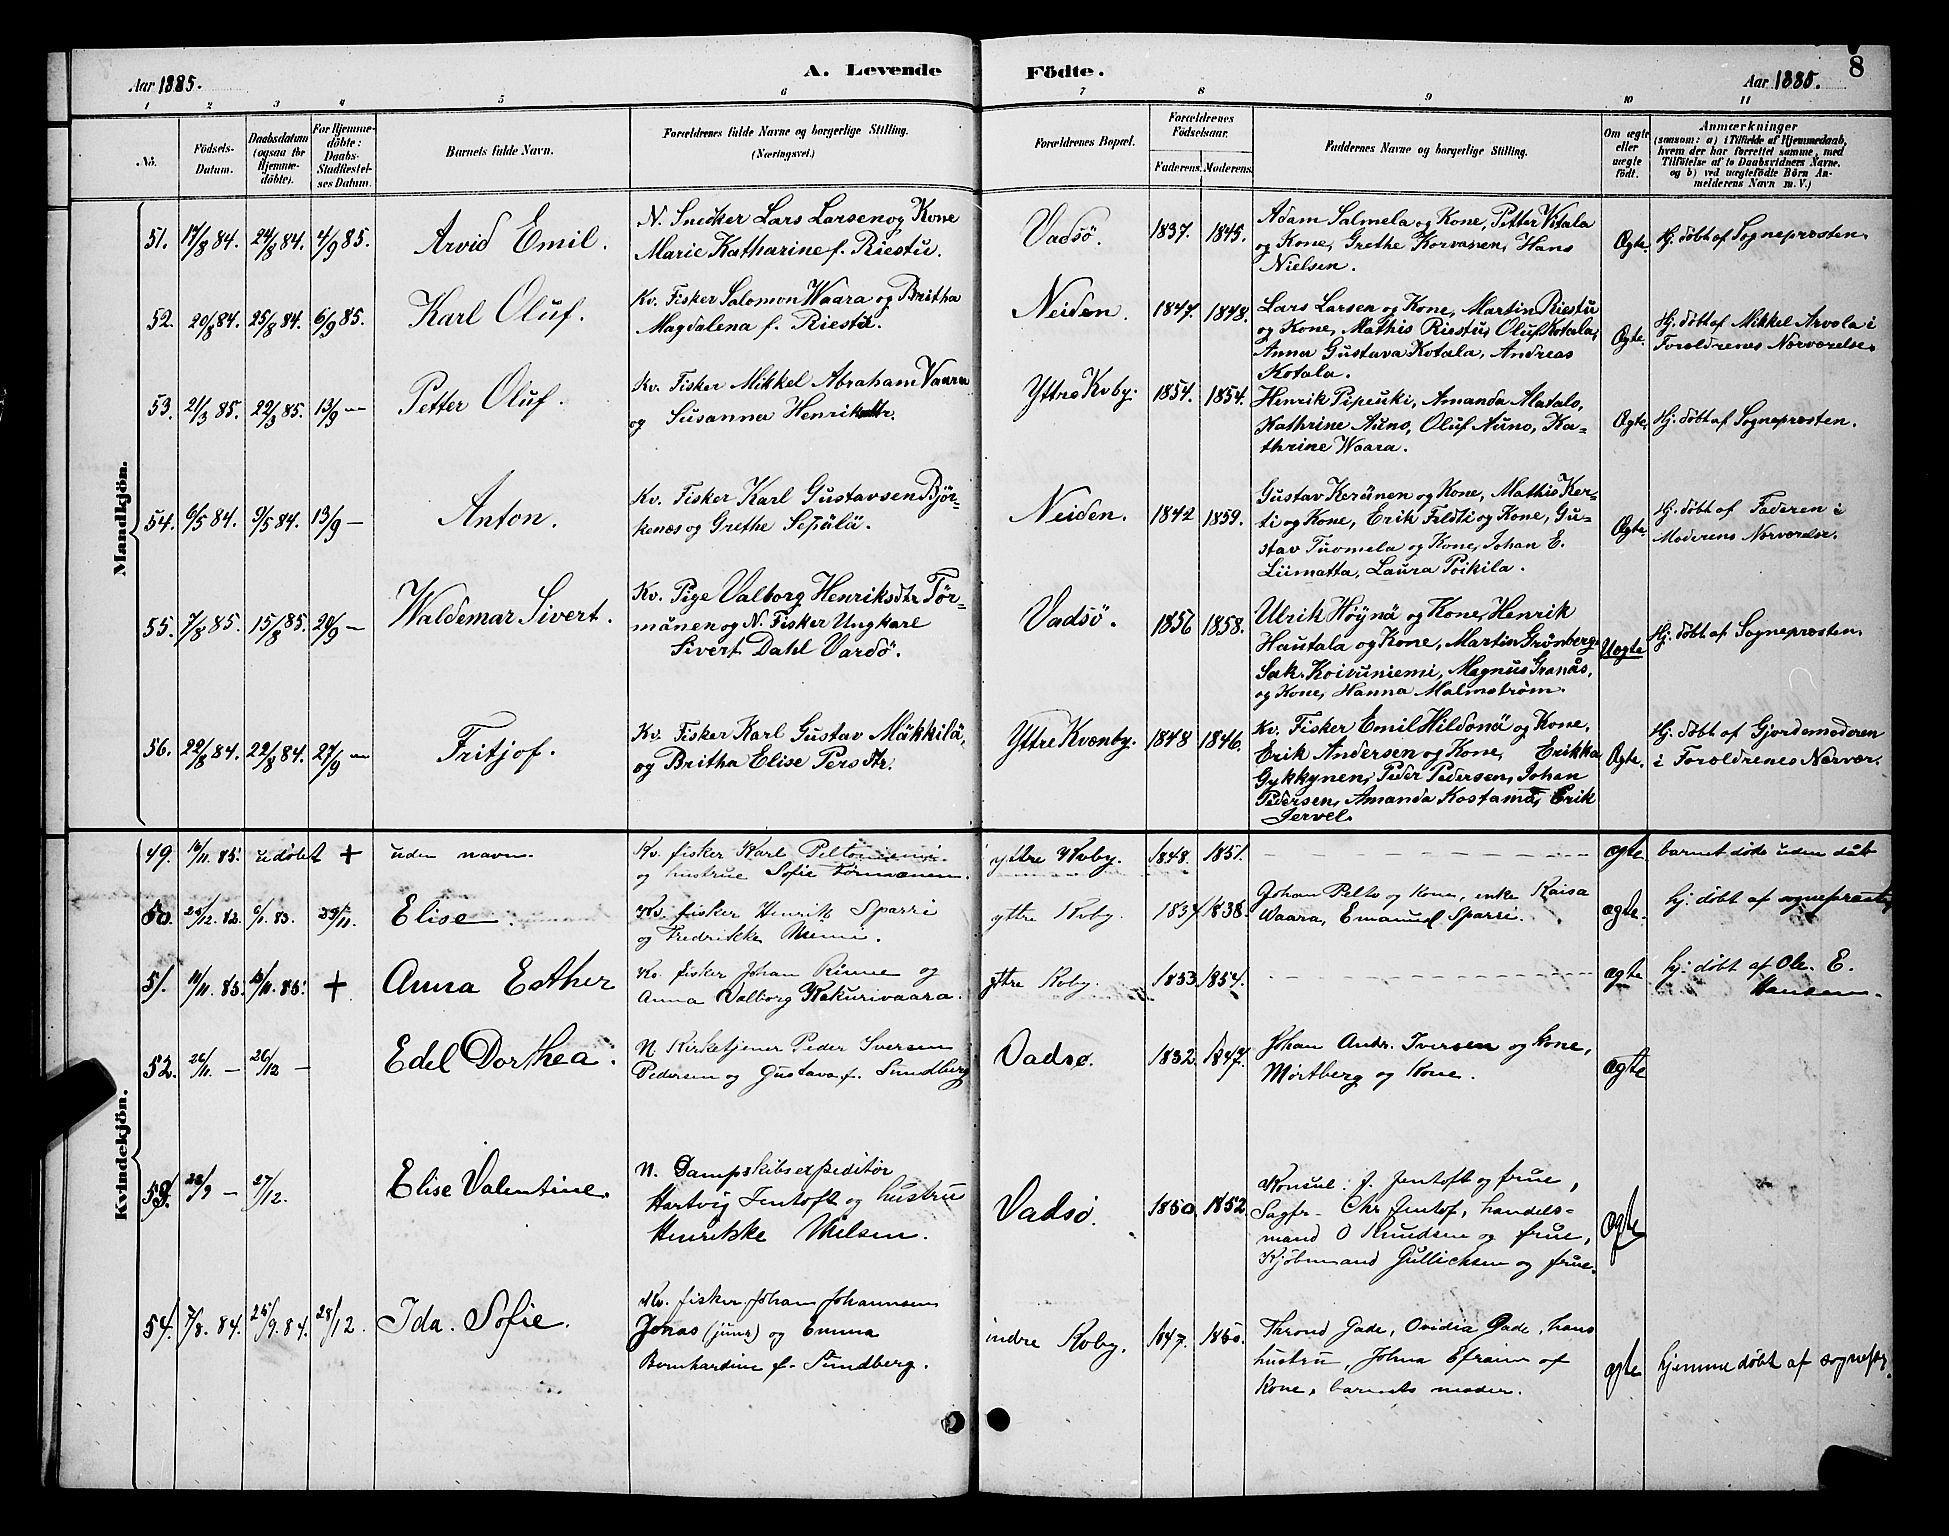 Aar 1885.
A. Levende Födte.
Aar 1885.
8
1 2 3 4 5 6 7 8 9 10 11
No.
Födsels-
Datum.
Daabsdatum
(ogsaa for
Hjemme-
döbte).
For Hjemme-
döbte:
Daabs-
Stadfæstel-
ses Datum.
Barnets fulde Navn.
Forældrenes fulde Navne og borgerlige Stilling.
(Næringsvei.)
Forældrenes Bopæl.
Forældrenes
Födselsaar.
Faderens. Moderens.
Faddernes Navne og borgerlige Stilling.
Om ægte
eller
uægte
födt.
Anmærkninger
(saasom: a) i Tilfælde af Hjemmedaab,
hvem der har forrettet samme, med
Tilföielse af to Daabsvidners Navne,
og b) ved uægtefödte Börn An-
melderens Navn m. V.)
Mandkjön.
51. 17/8 84. 24/8 84. 4/9 85. Arvid Emil.
N. Snedker Lars Larsen og Kone
Marie Katharine f. Riestu.
Vadsö. 1837. 1845.
Adam Salmela og Kone, Petter Kotala
og Kone, Grethe Korvanen, Hans
Nielsen.
Ægte. Hj. döbt af Sognepræsten.
52. 20/8 84. 25/8 84. 6/9 85. Karl Oluf.
Kv. Fisker Salomon Waara og Britha
Magdalena f. Riestu.
Neiden. 1847. 1848.
Lars Larsen og Kone, Martin Riestu
og Kone, Mathis Riestu, Oluf Kotala,
Anna Gustava Kotala, Andreas
Kotala.
Ægte. Hj. döbt af Mikkel Arvola i
Forældrenes Nærværelse.
53. 21/3 85. 22/3 85. 13/9 — Petter Oluf.
Kv. Fisker Mikkel Abraham Vaara
og Susanna Henriksdtr.
Yttre Kvby. 1854. 1854.
Henrik Pipeuki, Amanda Alatalo,
Kathrine Auno, Oluf Auno, Ka-
thrine Waara.
Ægte. Hj. döbt af Sognepræsten.
54. 6/5 84. 9/5 84. 13/9 — Anton.
Kv. Fisker Karl Gustavsen Björ-
kenæs og Grethe Sepälä.
Neiden. 1842 1859.
Gustav Keränen og Kone, Mathis Ker-
ti og Kone, Erik Feldti og Kone, Gu-
stav Tuomela og Kone, Johan E.
Liimatta, Laura Poikila.
Ægte. Hj. döbt af Faderen i
Moderens Nærværelse.
55. 7/8 85. 15/8 85. 20/9 — Waldemar Sivert.
Kv. Pige Valborg Henriksdtr Tör-
mänen og N. Fisker Ungkarl
Sivert Dahl Vardö.
Vadsö. 1856 1858.
Ulrik Höynä og Kone, Henrik
Hautala og Kone, Martin Grönberg,
Sak. Koivuniemi, Magnus Granås,
og Kone, Hanna Malmström.
Uægte Hj. döbt af Sognepræsten.
56. 22/8 84. 22/8 84. 27/9 — Fritjof.
Kv. Fisker Karl Gustav Mäkkilä,
og Britha Elise Persdtr.
Yttre Kvænby. 1848 1846.
Kv. Fisker Emil Hildonä og Kone,
Erik Andersen og Kone, Erikka
Gykkynen, Peder Pedersen, Johan
Pedersen, Amanda Kostamo, Erik
Jervel.
Ægte. Hj. döbt af Gjordemoderen
i Forældrenes Nærvær.
Kvindekjön.
49. 16/11. 85. udöbt + uden navn.
Kv. fisker Karl Peltoniemi
og hustrue Sofie Törmænen.
yttre Kvby. 1848. 1851. ægte. barnet döde uden dåb
50. 12. 82. 6/1. 83. 23/11. Elise.
Kv. fisker Henrik Sparri
og Fredrikke Niemi.
yttre Kvby. 1837 1838.
Johan Pelto og Kone, enke Kaisa
Waara, Emanuel Sparri.
ægte. hj. döbt af sognepræst
51. 11/11. 85. 13/11. 85. + Anna Esther
Kv. fisker Johan Rinne og
Anna Valborg Kekurivaara.
yttre Kvby. 1853 1854. ægte hj. döbt af Ole. E.
Hansen.
52. 26/11. — 26/12 — Edel Dorthea.
N Kirketjener Peder Iversen
Pedersen og Gustava f. Sundberg
Vadsø. 1832. 1847.
Johan Andr. Iversen og Kone,
Mörtberg og Kone.
ægte
53. 28/9 — 27/12. Elise Valentine.
N. Dampskibsexpeditör
Hartvig Jentoft og hustru
Henrikke Nielsen.
Vadsø. 1850. 1852
Konsul J. Jentoft og frue,
Sagfr. Chr Jentof, handels-
mand O Knudsen og frue,
Kjöbmand Gullichsen og frue.
ægte
54. 7/8. 84. 25/9. 84. 28/12. Ida. Sofie.
Kv. fisker. Johan Johannsen
Jonas (junr) og Emma
Bernhardine f. Sundberg.
indre Kvby. 1847. 1850.
Thrond Gade, Ovidia Gade, hans
hustru, Johna Efraim af
Kone, barnets moder.
ægte hjemme döbt af sognepr.